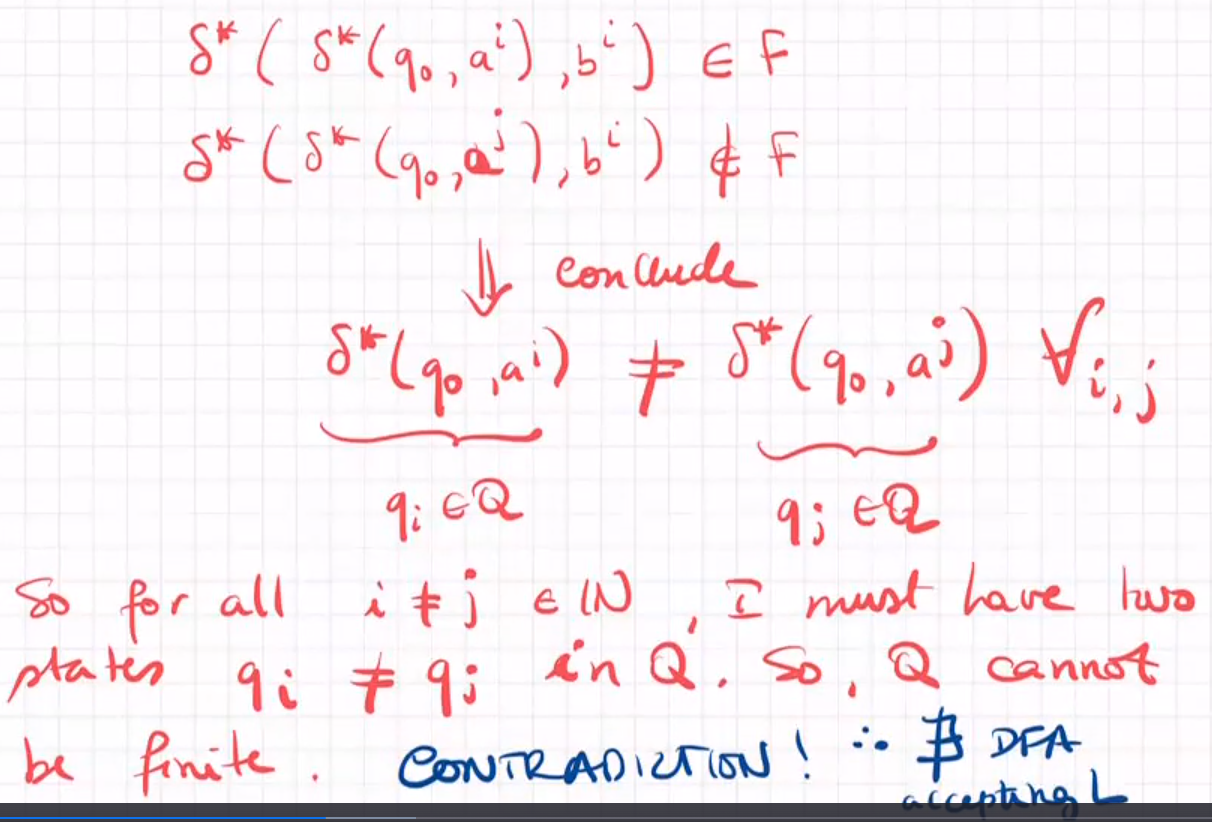 δ*( δ*(q₀, aⁱ), bⁱ) ∈ F
δ*( δ*(q₀, aʲ), bⁱ) ∉ F
⇓ conclude
δ*(q₀, aⁱ) ≠ δ*(q₀, aʲ) ∀i,j
qᵢ ∈ Q qⱼ ∈ Q
So for all i ≠ j ∈ ℕ, I must have two
states qᵢ ≠ qⱼ in Q. So, Q cannot
be finite. CONTRADICTION! ∴ ∄ DFA
accepting L